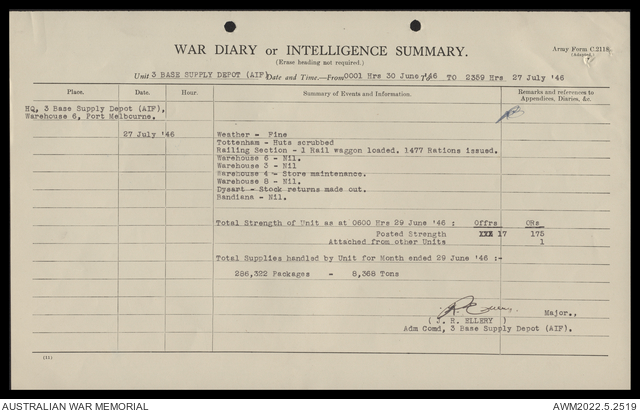 WAR DIARY or INTELLIGENCE SUMMARY.
(Erase heading not required.)
Army Form C.2118.
(Adapted.)
Unit 3 BASE SUPPLY DEPOT (AIF) Date and Time.—From 0001 Hrs 30 June '46 TO 2359 Hrs 27 July '46
Place. Date. Hour. Summary of Events and Information. Remarks and references to Appendices, Diaries, &c.
HQ, 3 Base Supply Depot (AIF),
Warehouse 6, Port Melbourne.
27 July '46 Weather - Fine
Tottenham - Huts scrubbed
Railing Section - 1 Rail waggon loaded. 1477 Rations issued.
Warehouse 6 - Nil.
Warehouse 3 - Nil
Warehouse 4 - Store maintenance.
Warehouse 8 - Nil.
Dysart - Stock returns made out.
Bandiana - Nil.
Total Strength of Unit as at 0600 Hrs 29 June '46 : Offrs ORs
Posted Strength 17 175
Attached from other Units 1
Total Supplies handled by Unit for Month ended 29 June '46 :-
286,322 Packages - 8,368 Tons
Major.,
( J. R. ELLERY )
Adm Comd, 3 Base Supply Depot (AIF).
(11)
AUSTRALIAN WAR MEMORIAL
AWM2022.5.2519